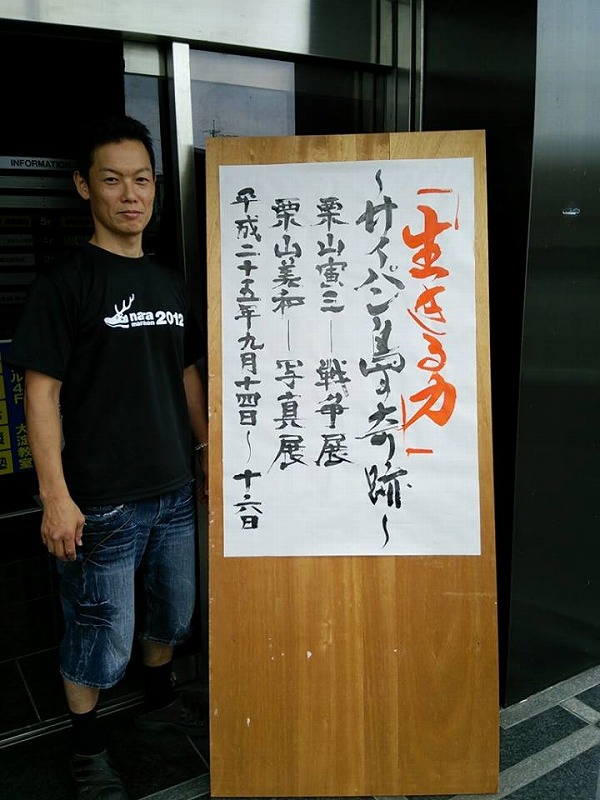 「生きる力」
~サイパン島の奇跡~
栗山寅三―戦争展
栗山美和―写真展
平成二十五年九月十四日~十六日
INFORMATION
nara
marathon 2012
ル4F
大淀教室